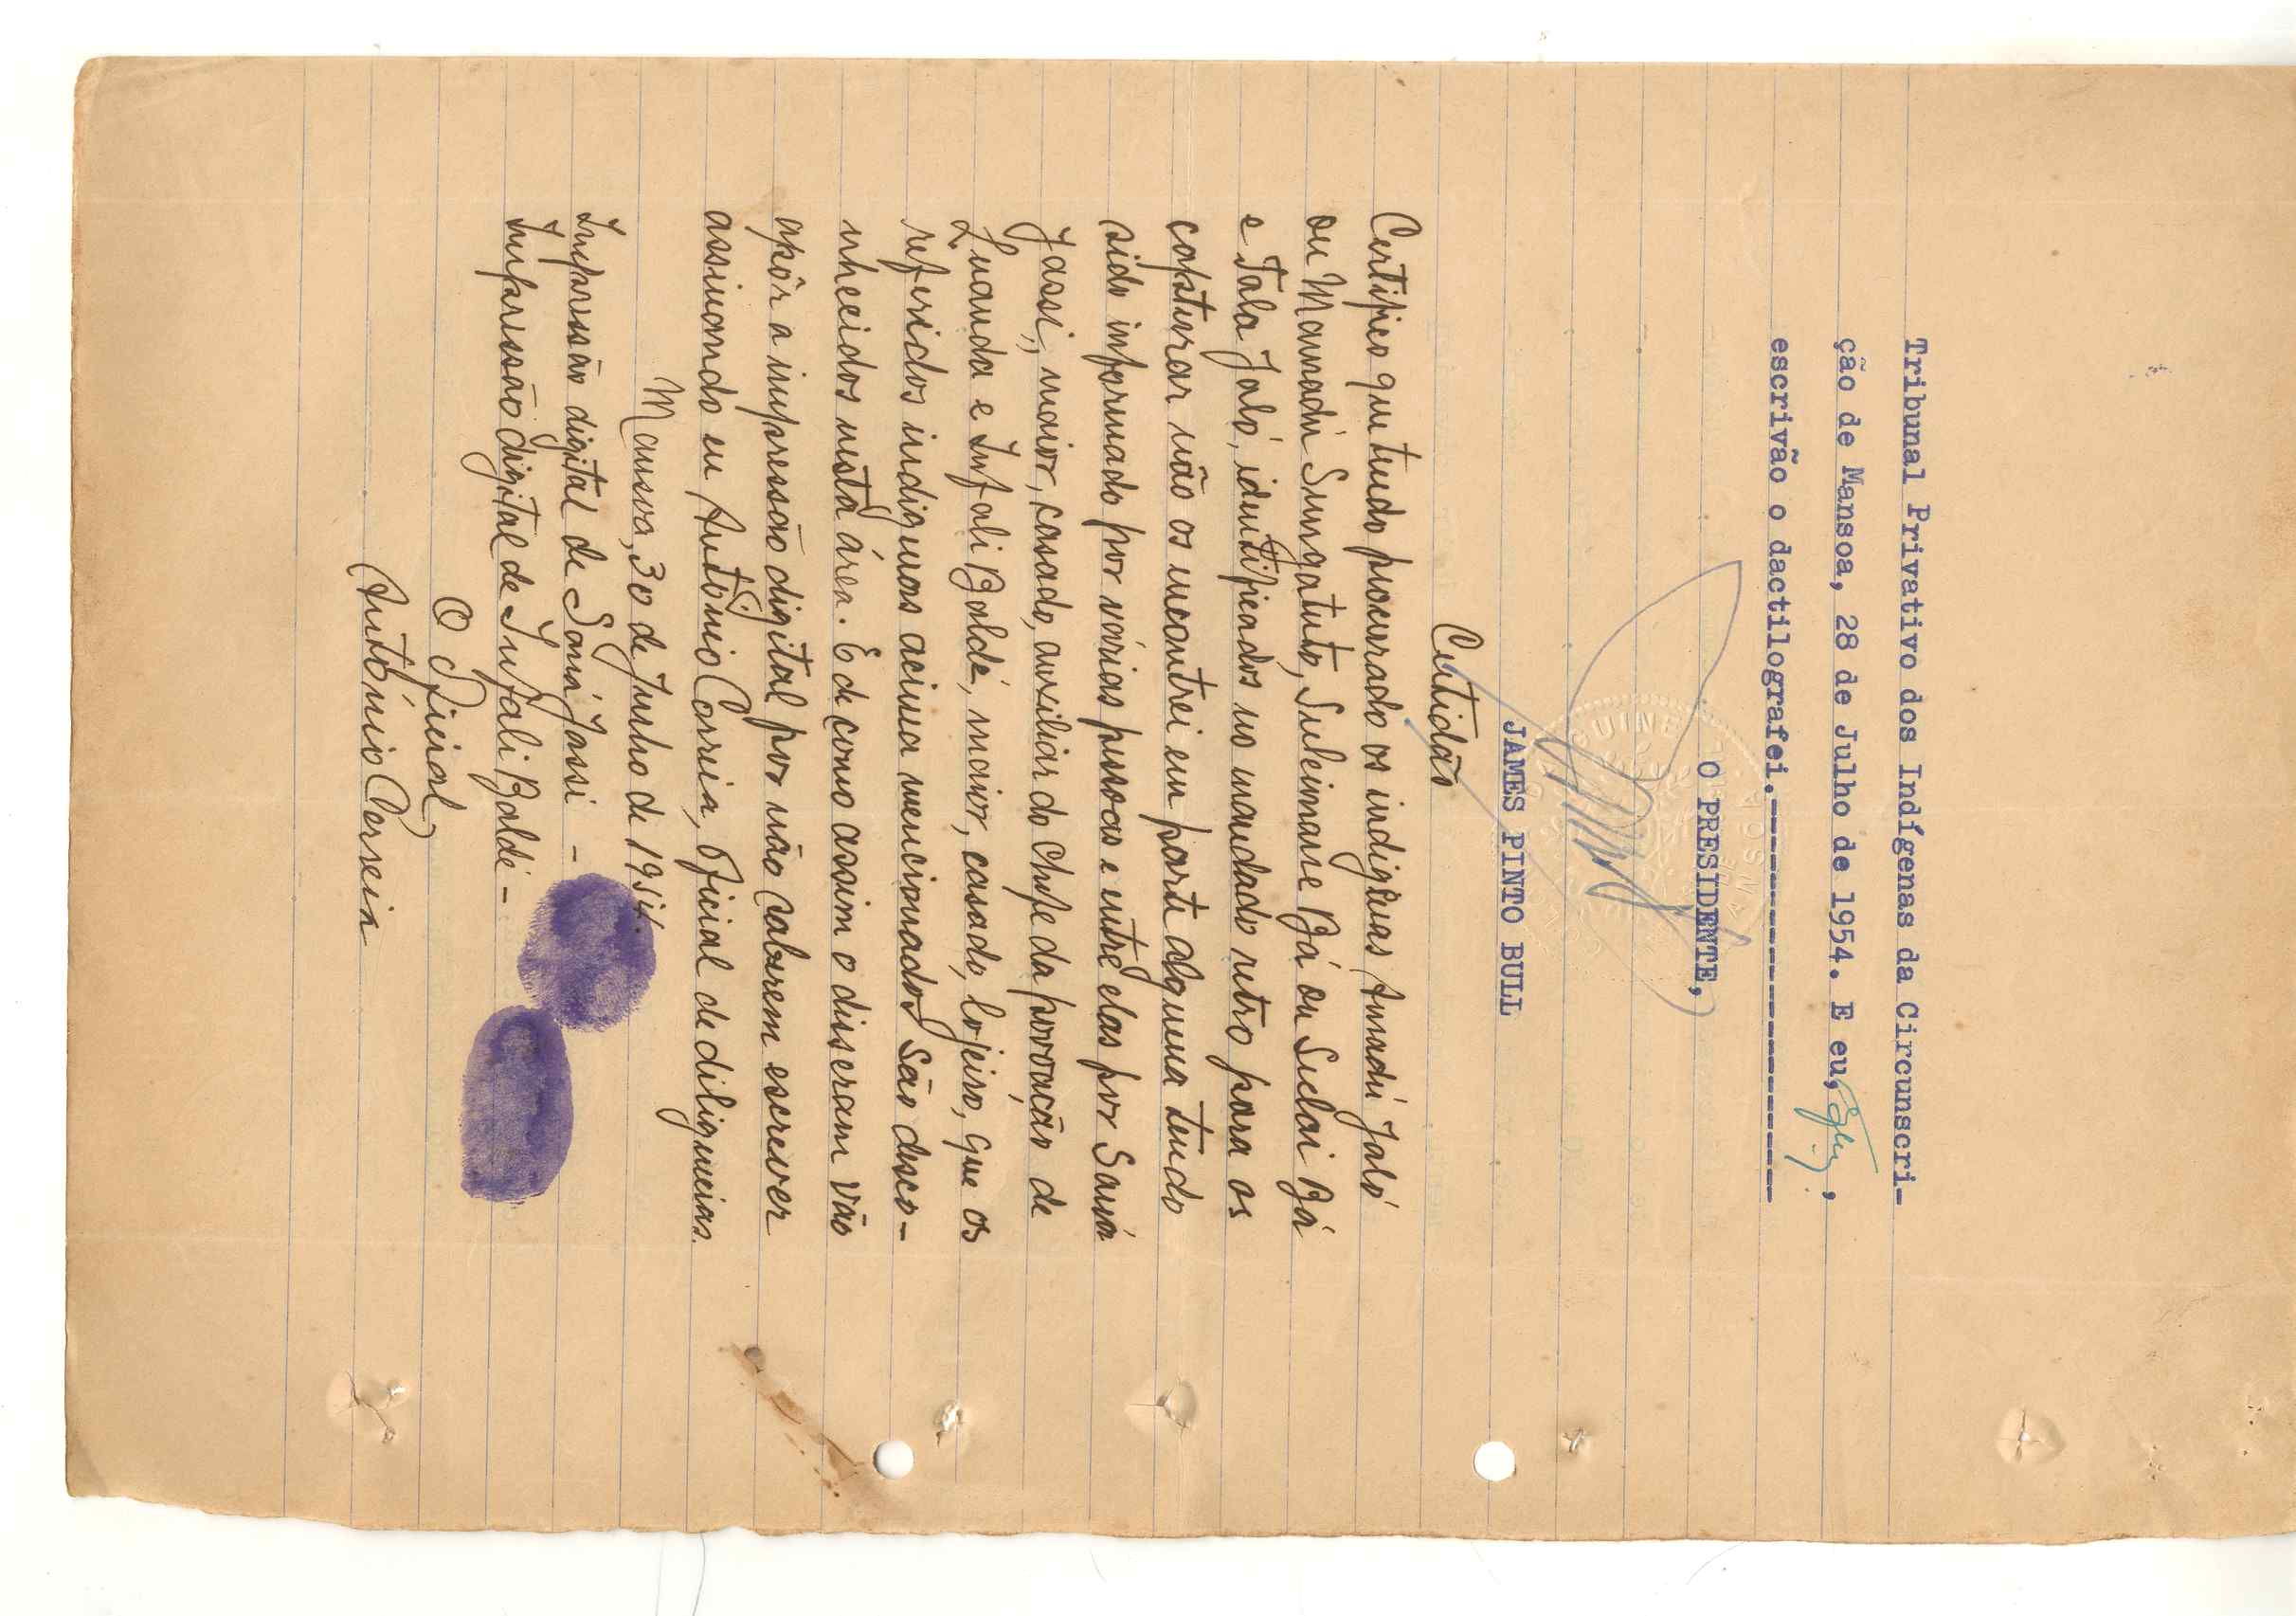 Tribunal Privativo dos Indígenas da Circunscri-
ção de Mansoa, 28 de Julho de 1954. E eu, ,
escrivão o dactilografei.-----------------------
O PRESIDENTE,
GUINE
MANSOA
JAMES PINTO BULL
Certidão
Certifico que tendo procurado os indigenas Amadú Jaló
ou Mamadú Sungatuto, Suleimane Bá ou Suclai Bá
e Tala Jaló, identificados no mandado retro para os
capturar não os encontrei em parte alguma tendo
sido informado por várias pessoas e entre elas por Saná
Jassi, maior, casado, auxiliar do Chefe da povoação de
Luanda e Infali Baldé, maior, casado, lojeiro, que os
referidos indigenas acima mencionados são desco-
nhecidos nesta área. E de como assim o diseram vão
apôr a impressão digital por não saberem escrever
assinando eu António Correia, Oficial de deligencias.
Mansoa, 30 de Junho de 1954.
Impressão digital de Saná Jassi -
Impressão digital de Infali Baldé -
O Oficial
António Correia